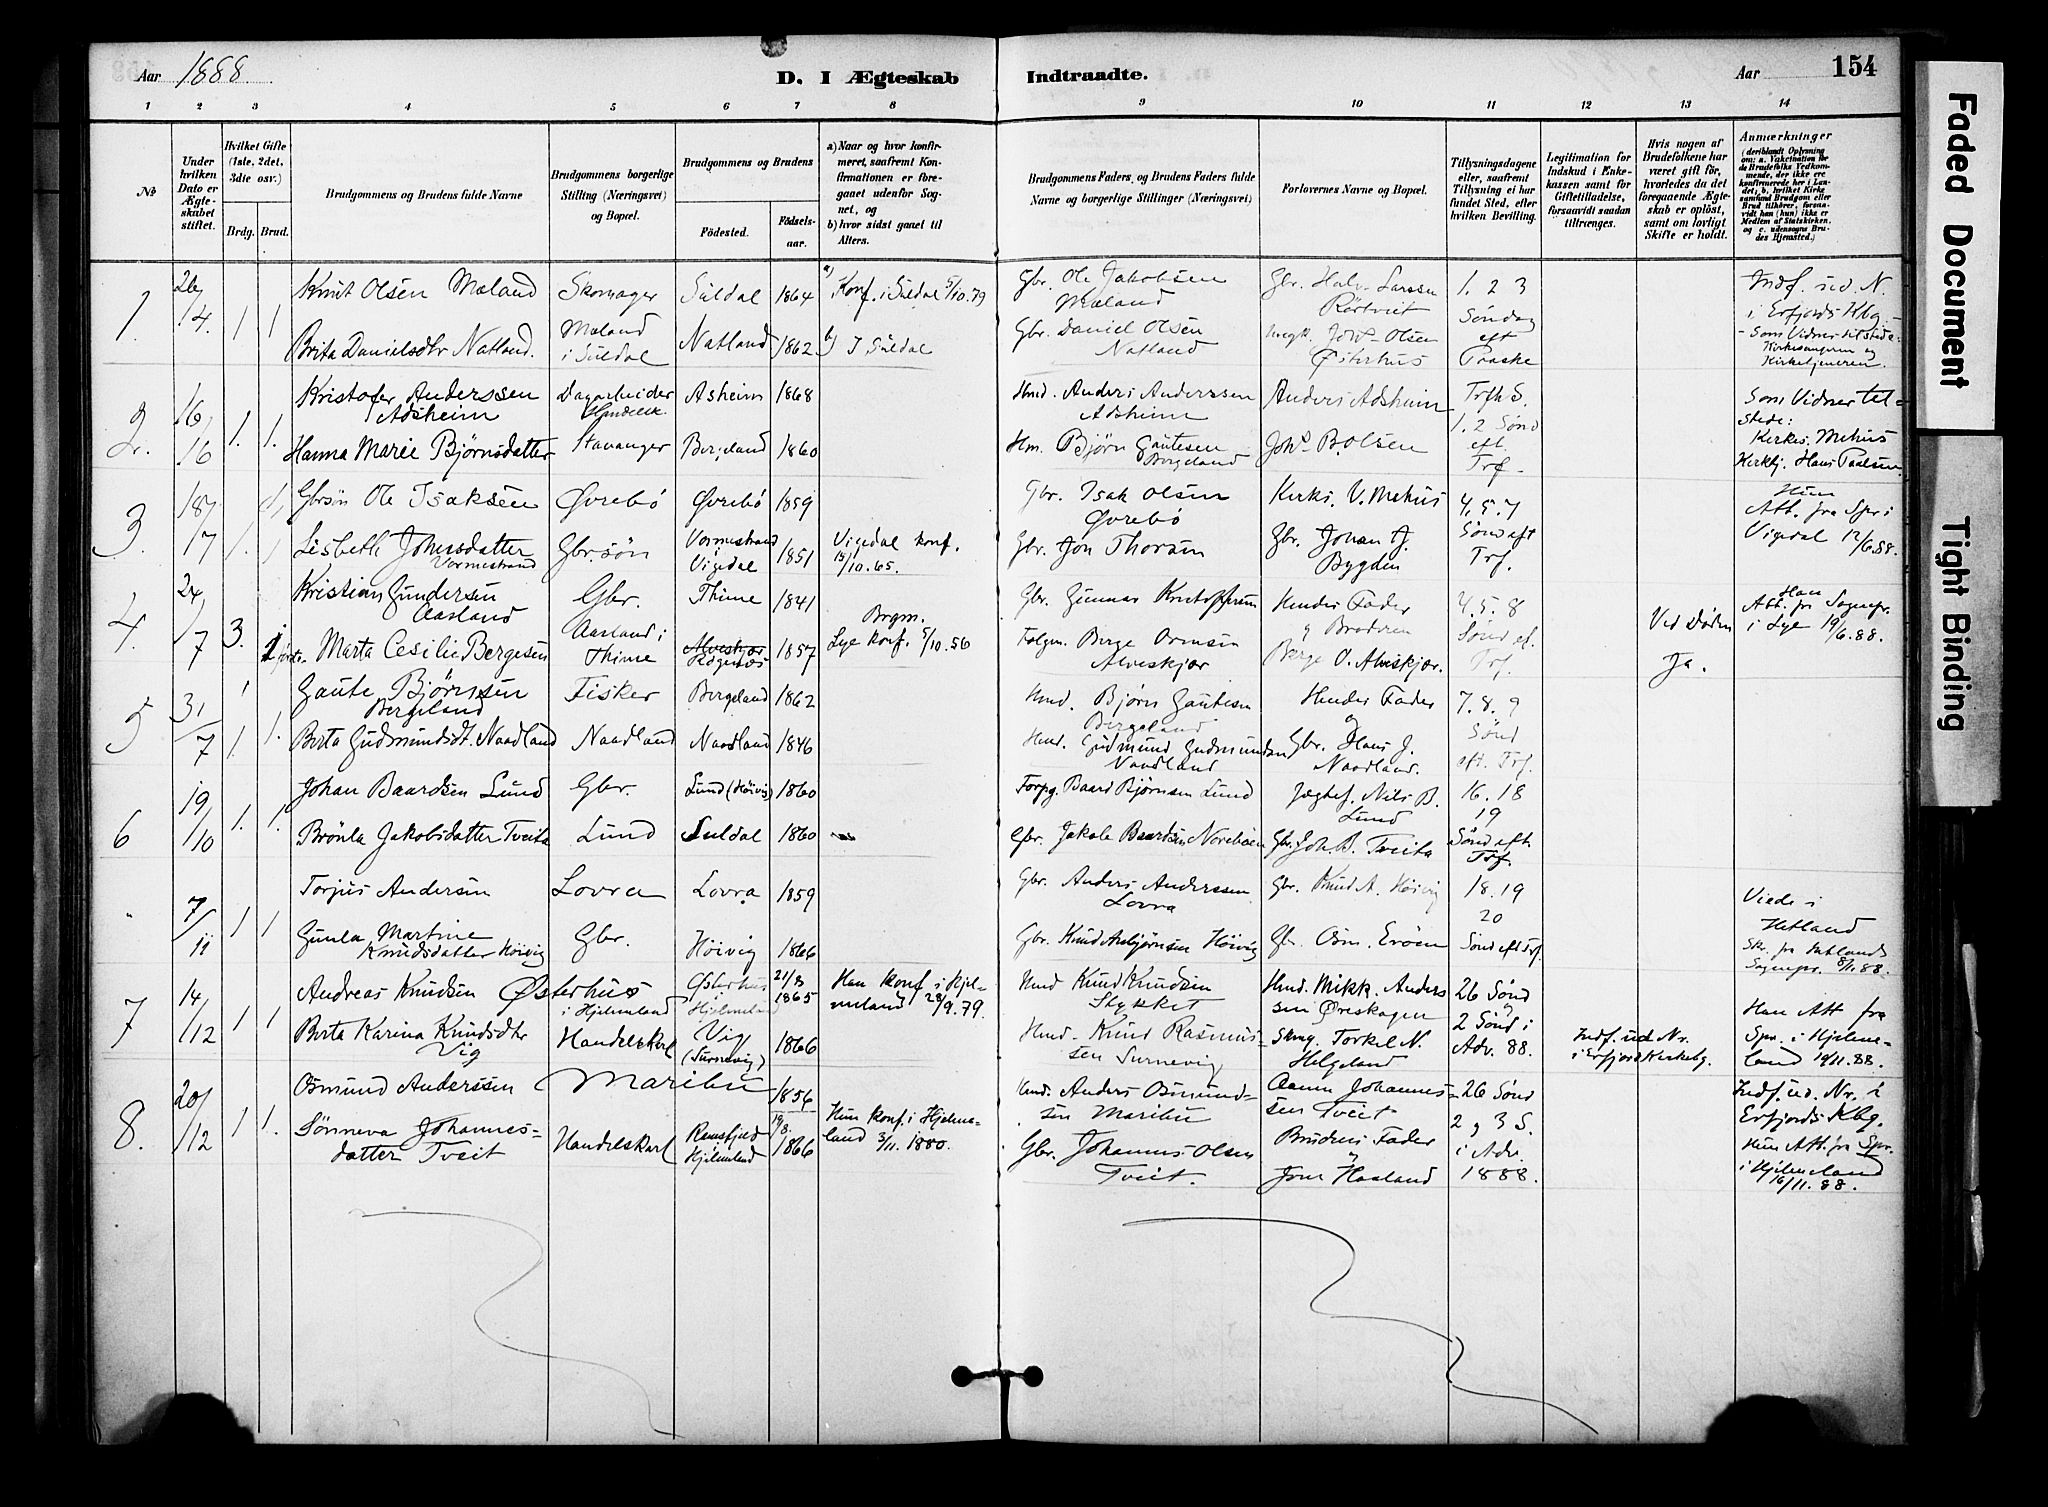 Aar 1888.
D. I Ægteskab Indtraadte.
Aar 154
1 2 3 4 5 6 7 8 9 10 11 12 13 14
№
Under hvilken Dato er Ægteskabet stiftet.
Hvilket Gifte (1ste, 2det, 3die osv.)
Brdg. Brud.
Brudgommens og Brudens fulde Navne
Brudgommens borgerlige Stilling (Næringsvei) og Bopæl.
Brudgommens og Brudens
Födested.
Födselsaar.
a) Naar og hvor konfirmeret, saafremt Konfirmationen er foregaaet udenfor Sognet, og
b) hvor sidst gaaet til Alters.
Brudgommens Faders, og Brudens Faders fulde Navne og borgerlige Stillinger (Næringsvei)
Forlovernes Navne og Bopæl.
Tillysningsdagene eller, saafremt Tillysning ei har fundet Sted, efter hvilken Bevilling.
Legitimation for Indskud i Enkekassen samt for Giftetilladelse, forsaavidt saadan tiltrænges.
Hvis nogen af Brudefolkene har været gift för, hvorledes da det foregaaende Ægteskab er oplöst, samt om lovligt Skifte er holdt.
Anmærkninger
(deriblandt Oplysning om: a. Vakcination for de Brudefolks Vedkommende, der ikke ere konfirmerede her i Landet; b. hvilket Kirkesamfund Brudgom eller Brud tilhörer, forsaavidt han (hun) ikke er Medlem af Statskirken, og c. udensogns Brudes Hjemsted.)
1. 26/14. 1 1
Knut Olsen Mæland Skomager Suldal 1864 a) Konf. i Suldal 5/10.79
Gbr. Ole Jakobsen Mæland Gbr. Halv. Larssen 1. 2 3
Brita Danielsdtr Natland. Mæland i Suldal Natland 1862 b) I Suldal
Gbr. Daniel Olsen Natland Joh. Olsen Østerhus Søndag eft Paaske
Indf. ud. N. i Erfjords Kbg. - Som Vidner tilstede Kirkesangeren og Kirketjeneren.
2. 16/16 1. 1.
Kristofer Anderssen Adsheim Dagarbeider Asheim 1868
Hmd. Anders Anderssen Adsheim Anders Adsheim Trfh S.
Hanna Marie Bjørnsdatter Stavanger Bergeland 1860
Hm. Bjørn Gautesen Bergeland Joh. B. Olsen 1. 2 Sønd eft. Trf.
Som Vidner tilstede: Kirkes. Mehus Kirketj. Hans Paalsen
3. 18/7 1. 1
Gbrsøn Ole Isaksen Øvrebø Øvrebø 1859
Gbr. Isak Olsen Øvrebø Kirks. V. Mehus 4. 5. 7
Lisbeth Johnsdatter Vormestrand Gbr.søn Vormestrand Vigedal 1851 Vigedal konf. 15/10.65.
Gbr. Jon Thorsen Gbr. Johan J. Bygden Sønd aft Trf.
Hun Att. fra Spr i Vigedal 12/6.88.
4. 24/7 3. 1 første
Kristian Gundersen Aasland Gbr. Thime 1841 Brgm. Lye konf. 5/10.56
Gbr. Gunnar Kristoffersen Hendes Fader og Broderen 4. 5. 8
Marta Cecilie Bergesen Aasland i Thime Alveskjær 1857
Folgm. Berge Ormsen Alveskjær Berge O. Alveskjær. Sønd ef. Trf.
Ved Døden Ja.
Han Att. fr Sognepr. i Lye 19/6.88.
5 31/7 1. 1.
Gaute Bjørnsen Bergeland Fisker Bergeland 1862
Hmd. Bjørn Gautesen Bergeland Hendes Fader og 7. 8. 9
Berta Gudmundsdt. Naadland Naadland Naadland 1846
Hmd. Gudmund Gudmundsen Naadland Gbr. Hans J. Naadland. Sønd eft. Trf.
6 19/10 1. 1.
Johan Baardsen Lund Gbr. Lund (Höivig) 1860
Forpg. Baard Bjørnsen Lund Nils B. Lund 16. 18 19
Brönla Jakobsdatter Tveita Lund Suldal 1860
Gbr. Jakob Baardsen Gbr. Joh. B. Tveita Sønd eft Trf.
" 7/11 1 1
Torjus Andersen Lovra Lovra 1859
Gbr. Anders Anderssen Lovra Gbr. Knud A. Höivig 18. 19 20
Gunla Martine Knudsdatter Höivig Gbr. Höivig 1866
Gbr. Knud Asbjørnsen Höivig Gbr. Osm. Erøen Sønd eft Trf.
Viede i Hetland Sk. fr Hetlands Sognepr. 8/11.88.
7 14/12 1 1
Andreas Knudsen Østerhus Østerhus i Hjelmeland 21/8 1865 Han konf i Hjelmeland 28/9.79.
Hmd Knud Knudsen Stykket Hmd. Mikk. Anderssen Øreskogen 26 Sønd
Berta Karina Knudsdtr Vig Handelskarl Vig (Surnevig) 1866
Hmd. Knud Rasmussen Surnevig Torkel N. Helgeland 2 Sønd i Adv. 88.
Indf. ud Nr. i Erfjord Kirkebg.
Han Att fra Spr. i Hjelmeland 19/11.88.
8. 20/12 1 1.
Osmund Anderssen Maribu 1856
Hmd. Anders Osmundsen Maribu Aanen Johannessen Tveit 26 Sønd
Sønneva Johannesdatter Tveit Handelskarl Ramsfjeld Hjelmeland 19/8. 1866 Hun konf. i Hjelmeland 3/11. 1880.
Gbr. Johannes Olsen Tveit. Brudens Fader Jone Haaland 2 og 3 S. i Adv. 1888.
Indf. ud. Nr. i Erfjords Kbg. Hun Att. fra Spr. i Hjelmeland 16/11.88.
Faded Document
Tight Binding